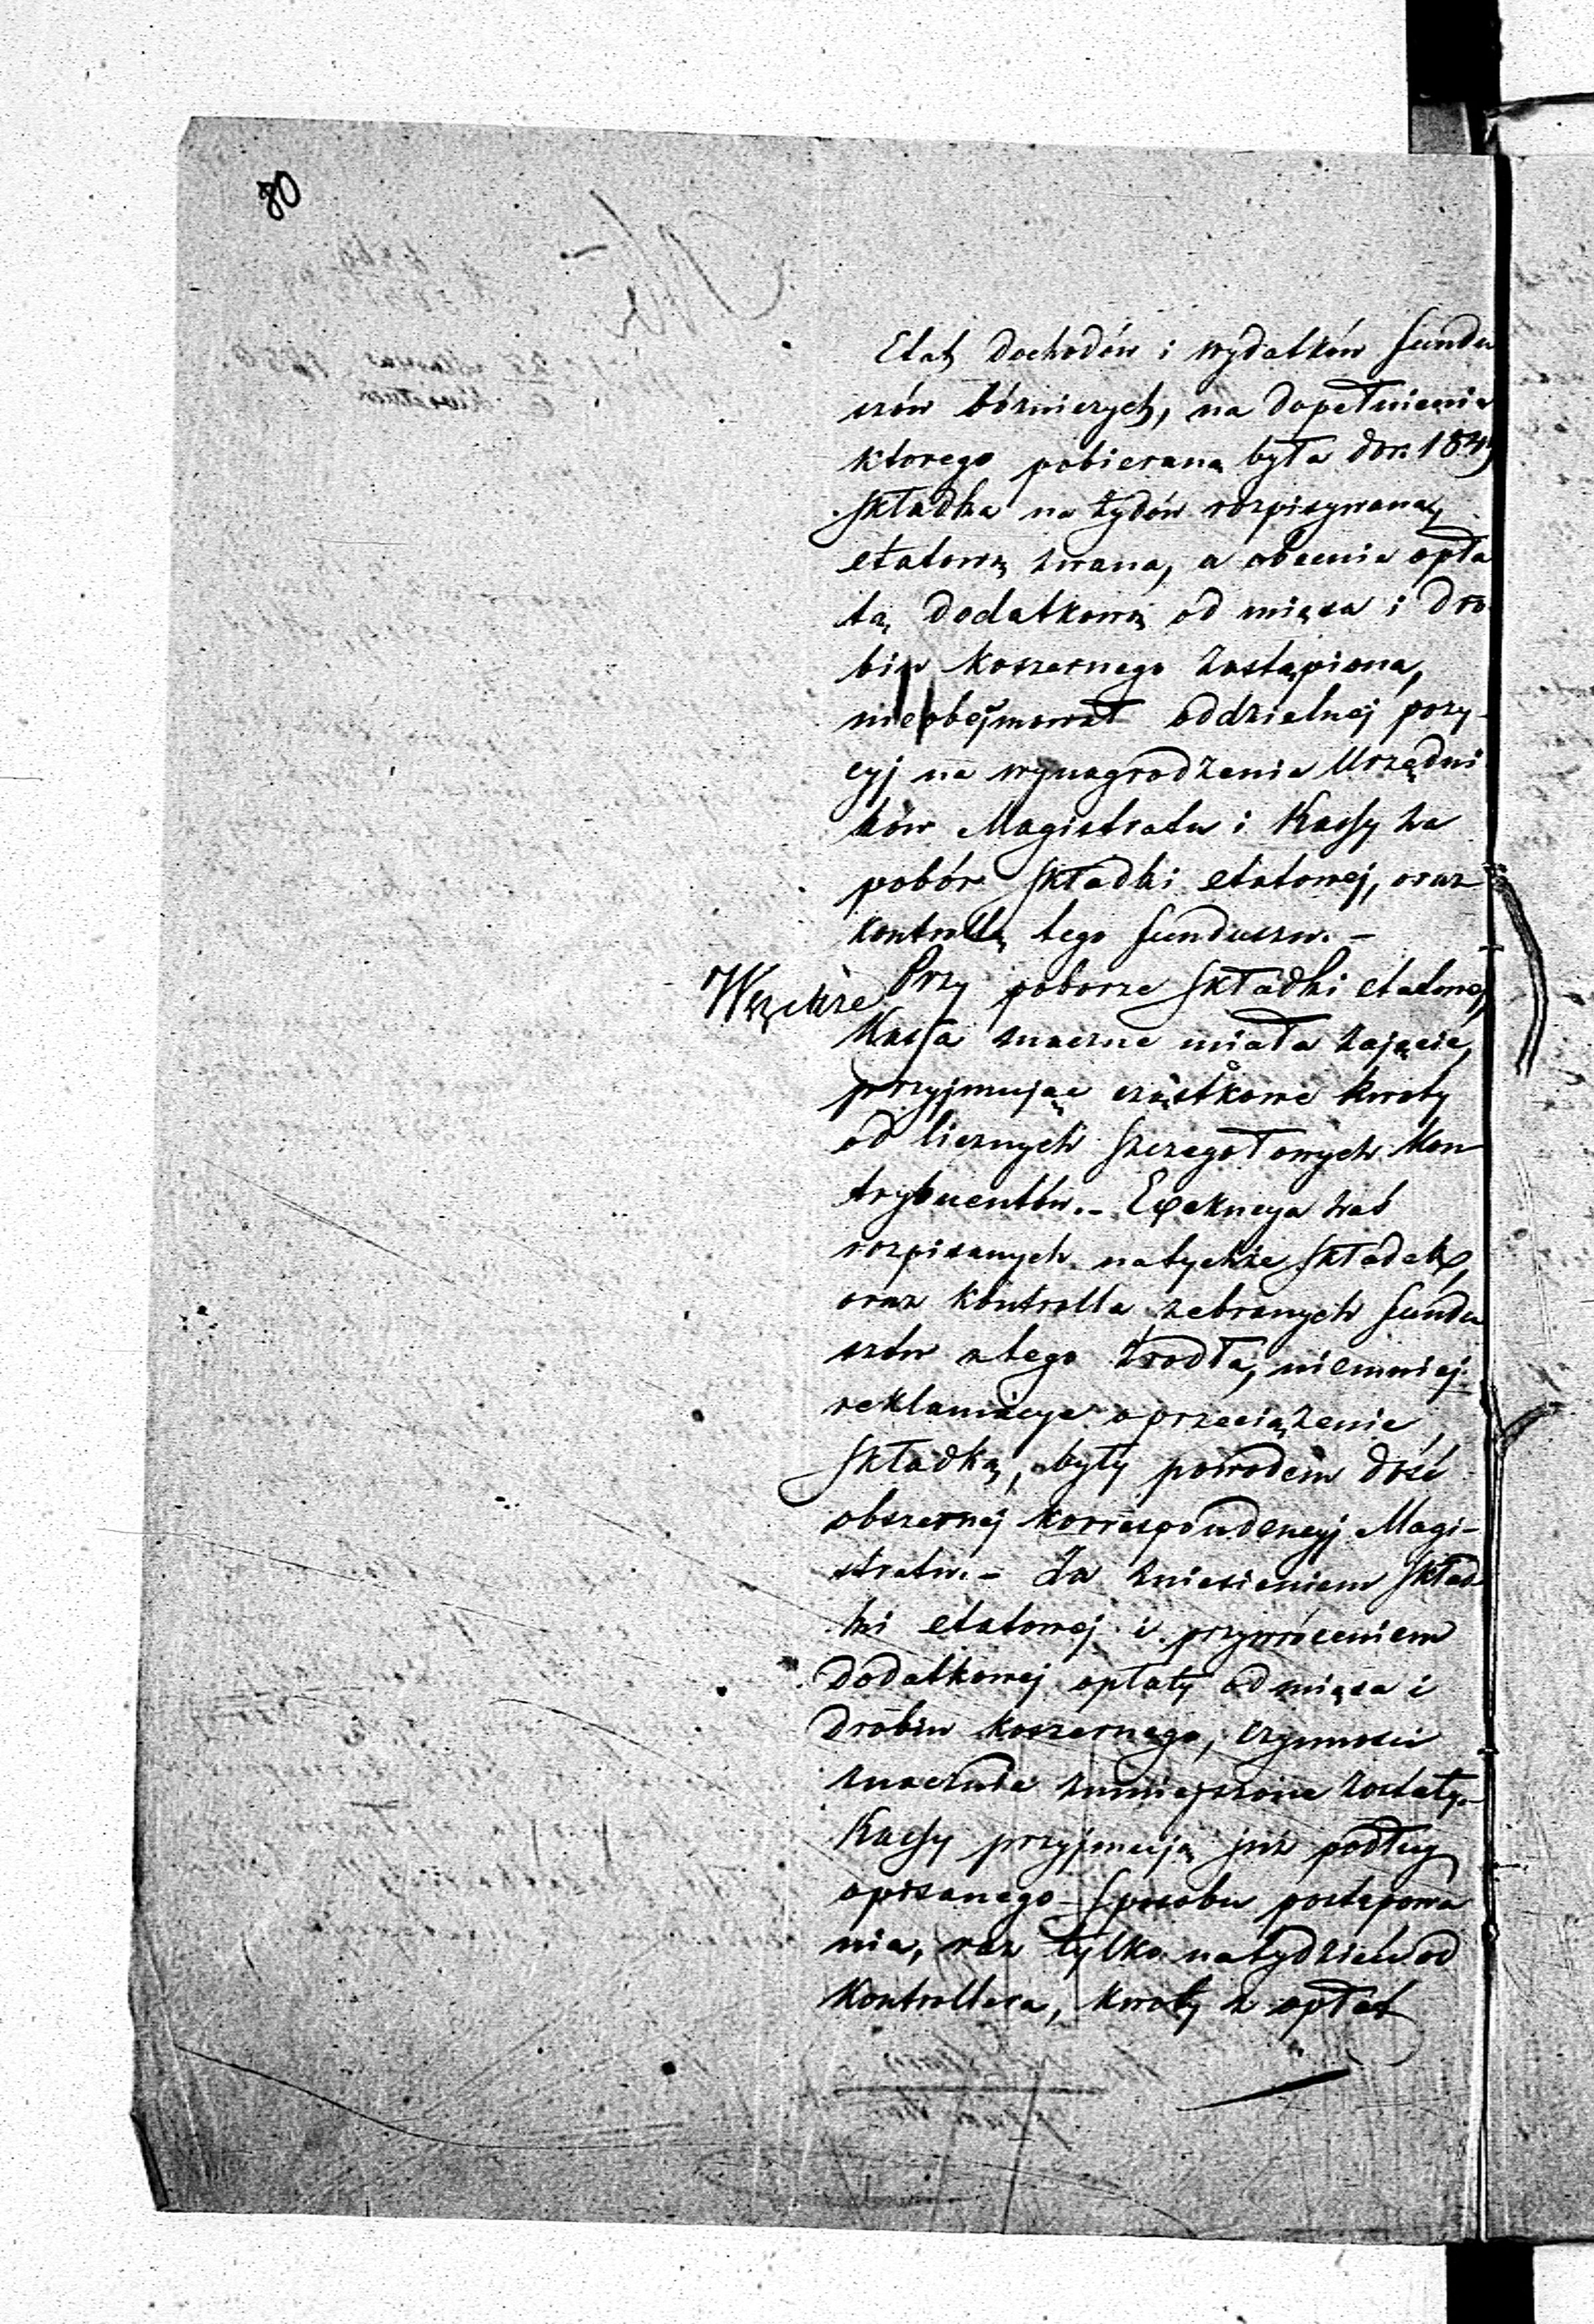 80
Etat dochodów i wydatków fundu
szów bóżniczych, na dopełnienie
ktorego pobierana była do r. 184
składka na żydów rozpisywana,
etatową zwana, a obecnie opła
tą dodatkową od mięsa i dro
biu koszernego zastąpiona,
nieobejmował oddzielnej pozy-
cyj na wynagrodzenie Urzędni
ków Magistratu i Kassy za
pobór składki etatowej, oraz
kontrollę tego funduszu. –
Przy poborze składki etatowej,
Kassa znaczne miała zajęcie,
przyjmując cząstkowe kwoty
od licznych szczegołowych kon
trybuentów. – Exekucya zaś
rozpisanych natychże składek,
oraz kontrolla zebranych fundu
szów z tego źrodła, niemniej
reklamacye o przeciążenie
składką, były powodem dość
obszernej korrespondencyj Magi-
stratu. – Za zniesieniem skład
ki etatowej i przywróceniem
dodatkowej opłaty od mięsa i
drobiu koszernego, czynności
znacznie zmniejszone zostały. –
Kassy przyjmują już podług
opisanego sposobu postępowa
nia, raz tylko na tydzień od
Kontrollera, kwoty z opłat